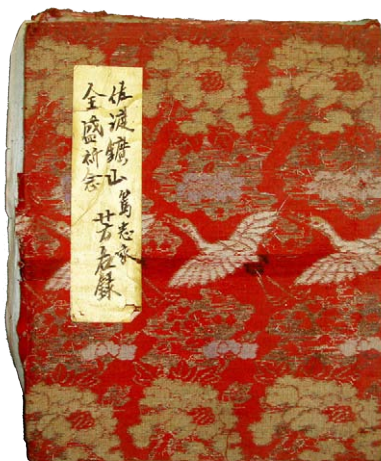 佐渡鑛山篤志家
全盛祈念 芳名録